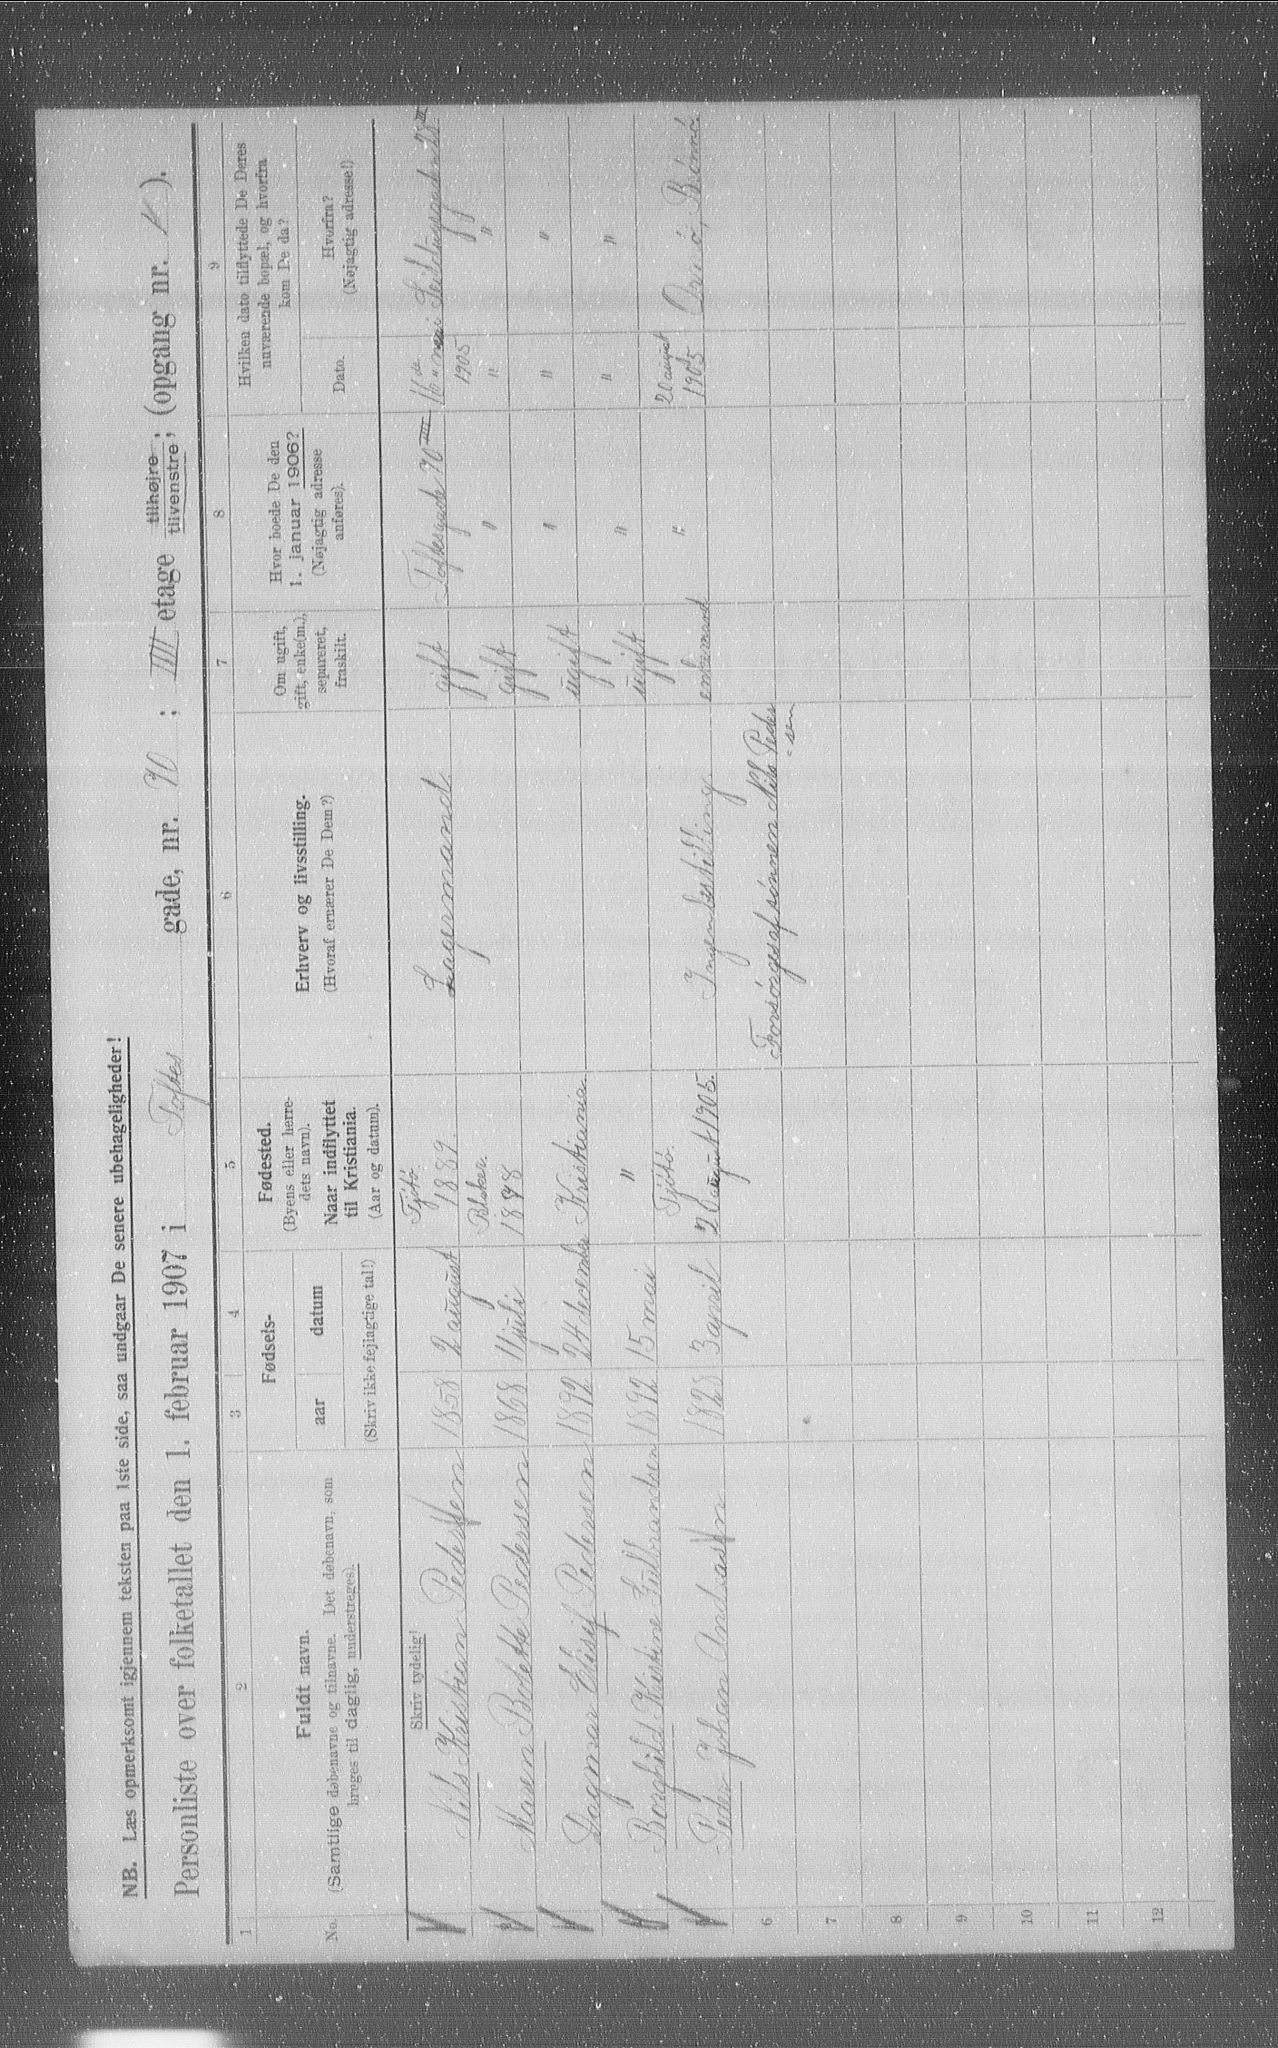 NB. Læs opmerksomt igjennem teksten paa 1ste side, saa undgaar De senere ubehageligheder!
Personliste over folketallet den 1. februar 1907 i Toftes gade, nr. 70 ; IIII etage tilhøjre, tilvenstre; (opgang nr. ).
1 2 3 4 5 6 7 8 9
No.
Fuldt navn.
(Samtlige døbenavne og tilnavne. Det døbenavn, som
bruges til daglig, understreges).
Fødsels-
aar datum
(Skriv ikke fejlagtige tal!)
Fødested.
(Byens eller herre-
dets navn).
Naar indflyttet
til Kristiania.
(Aar og datum).
Erhverv og livsstilling.
(Hvoraf ernærer De Dem?)
Om ugift,
gift, enke(m.),
separeret,
fraskilt.
Hvor boede De den
1. januar 1906?
(Nøjagtig adresse
anføres).
Hvilken dato tilflyttede De Deres
nuværende bopæl, og hvorfra
kom De da?
Dato.
Hvorfra?
(Nøjagtig adresse!)
Skriv tydelig!
Nils Kristian Pedersen 1858 2 august Tjøtø. 1889. Lagermand gift Toftesgade 70 IIII 16de mai 1905
Maren Bolette Pedersen 1868 11 juli Blaker. 1888 gift " " "
Dagmar Elisif Pedersen 1892 24 december Kristiania. ugift " " "
Borghild Kristine Gulbrandsen 1892 15 mai " ugift " " "
Peder Johan Andreassen 1828 3 april Tjøtø. 20 august 1905. Ingen bestilling enkemand " 20 august 1905 Brønnø.
Forsørges af sønnen Nils Peder
-sen
6
7
8
9
10
11
12